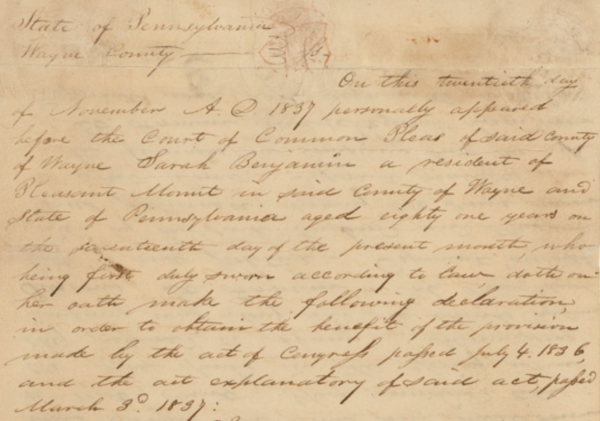 State of Pennsylvania
Wayne County
On this twentieth day
of November A. D. 1837 personally appeared
before the Court of Common Pleas of said County
of Wayne Sarah Benjamin a resident of
Pleasant Mount in said County of Wayne and
State of Pennsylvania aged eighty one years on
the seventeenth day of the present month, who
being first duly sworn according to law, doth on
her oath make the following declaration,
in order to obtain the benefit of the provision
made by the act of Congress passed July 4. 1836,
and the act explanatory of said act, passed
March 3d 1837: